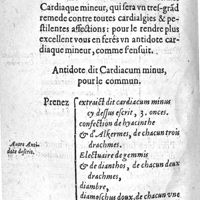 Cardiaque mineur, qui sera vn tres-grãd
remede contre toutes cardialgies & pe-
stilentes affections: pour le rendre plus
excellent vous en ferés vn antidote car-
diaque mineur, comme s'ensuit.
Antidote dit Cardiacum minus,
pour le commun.
Prenez
extraict dit cardiacum minus
cy dessus escrit, 3. onces.
confection de hyacinthe
& d'Alkermes, de chacun trois
drachmes.
Autre Anti-
dote descrit.
Electuaire de gemmis
& de dianthos, de chacun deux
drachmes.
diambre,
diamoschus doux, de chacun vne